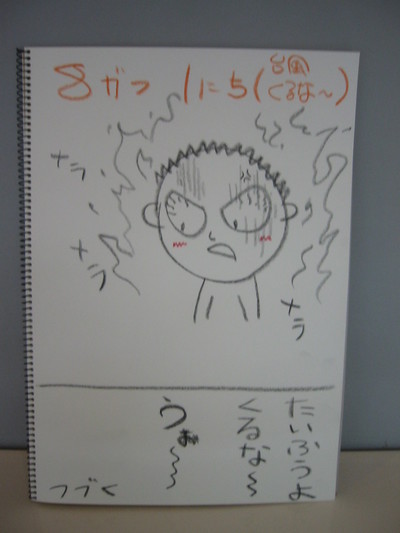 8がつ 1にち(台風くるな〜)
メラ
メラ
メラ
たいふうよ
くるな〜
うぉ〜〜
つづく